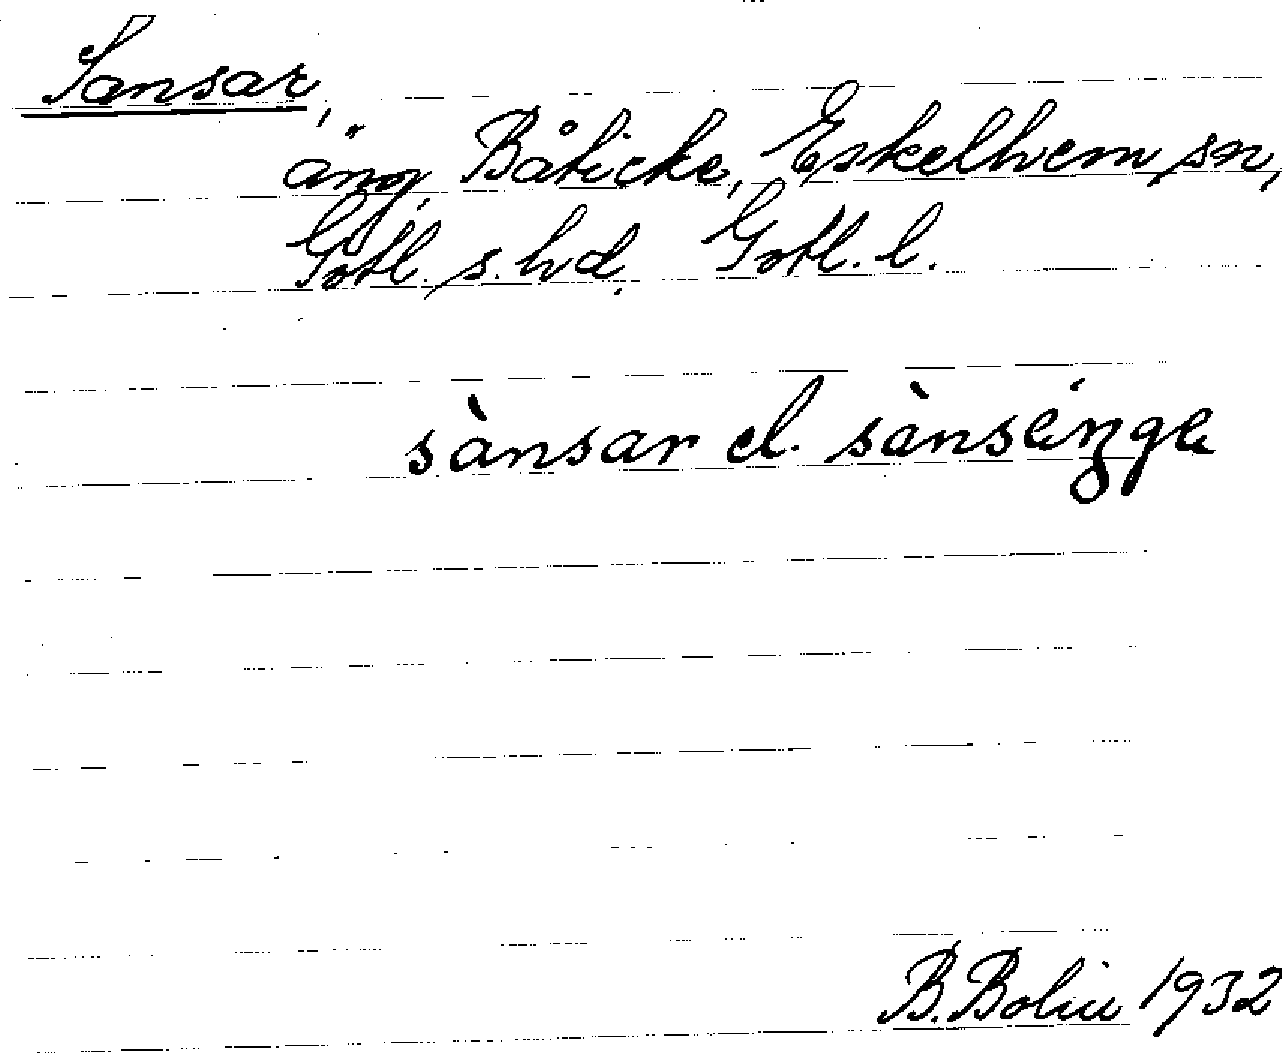 Sansar,
äng, Båticke, Eskelhem sn,
Gotl. s. hd. Gotl. l.
sànsar el. sànseŋge
B. Bolin 1932